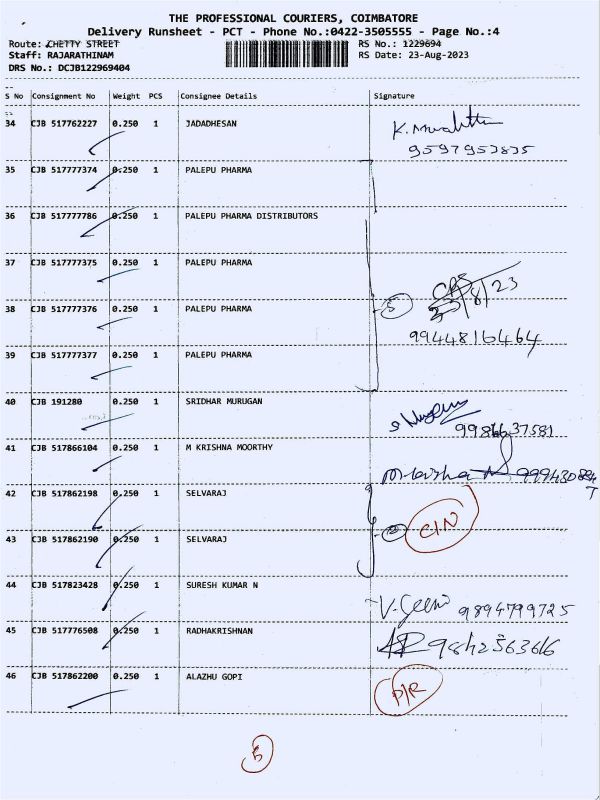 THE PROFESSIONAL COURIERS, COIMBATORE
Delivery Runsheet - PCT - Phone No.:0422-3505555 - Page No.:4
Route: CHETTY STREET RS No.: 1229694
Staff: RAJARATHINAM RS Date: 23-Aug-2023
DRS No.: DCJB122969404
S No Consignment No Weight PCS Consignee Details Signature
34 CJB 517762227 0.250 1 JADADHESAN
9597953835
35 CJB 517777374 0.250 1 PALEPU PHARMA
36 CJB 517777786 0.250 1 PALEPU PHARMA DISTRIBUTORS
37 CJB 517777375 0.250 1 PALEPU PHARMA
38 CJB 517777376 0.250 1 PALEPU PHARMA 5 23/8/23
9944816464
39 CJB 517777377 0.250 1 PALEPU PHARMA
40 CJB 191280 0.250 1 SRIDHAR MURUGAN
9986637581
41 CJB 517866104 0.250 1 M KRISHNA MOORTHY
42 CJB 517862198 0.250 1 SELVARAJ
C/N
43 CJB 517862190 0.250 1 SELVARAJ
44 CJB 517823428 0.250 1 SURESH KUMAR N
9894799725
45 CJB 517776508 0.250 1 RADHAKRISHNAN 9842563616
46 CJB 517862200 0.250 1 ALAZHU GOPI D/R
5